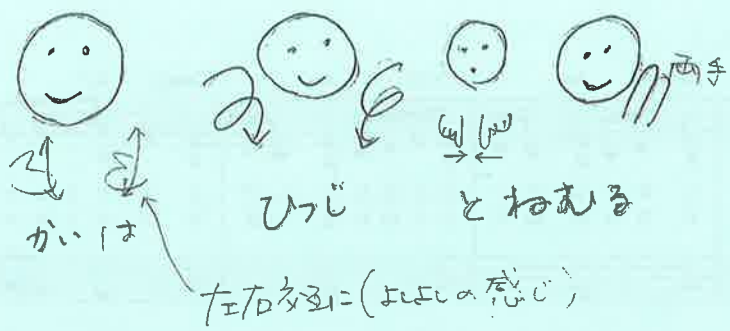 両手
かいは ひつじ とねむる
左右交互に(よしよしの感じ)